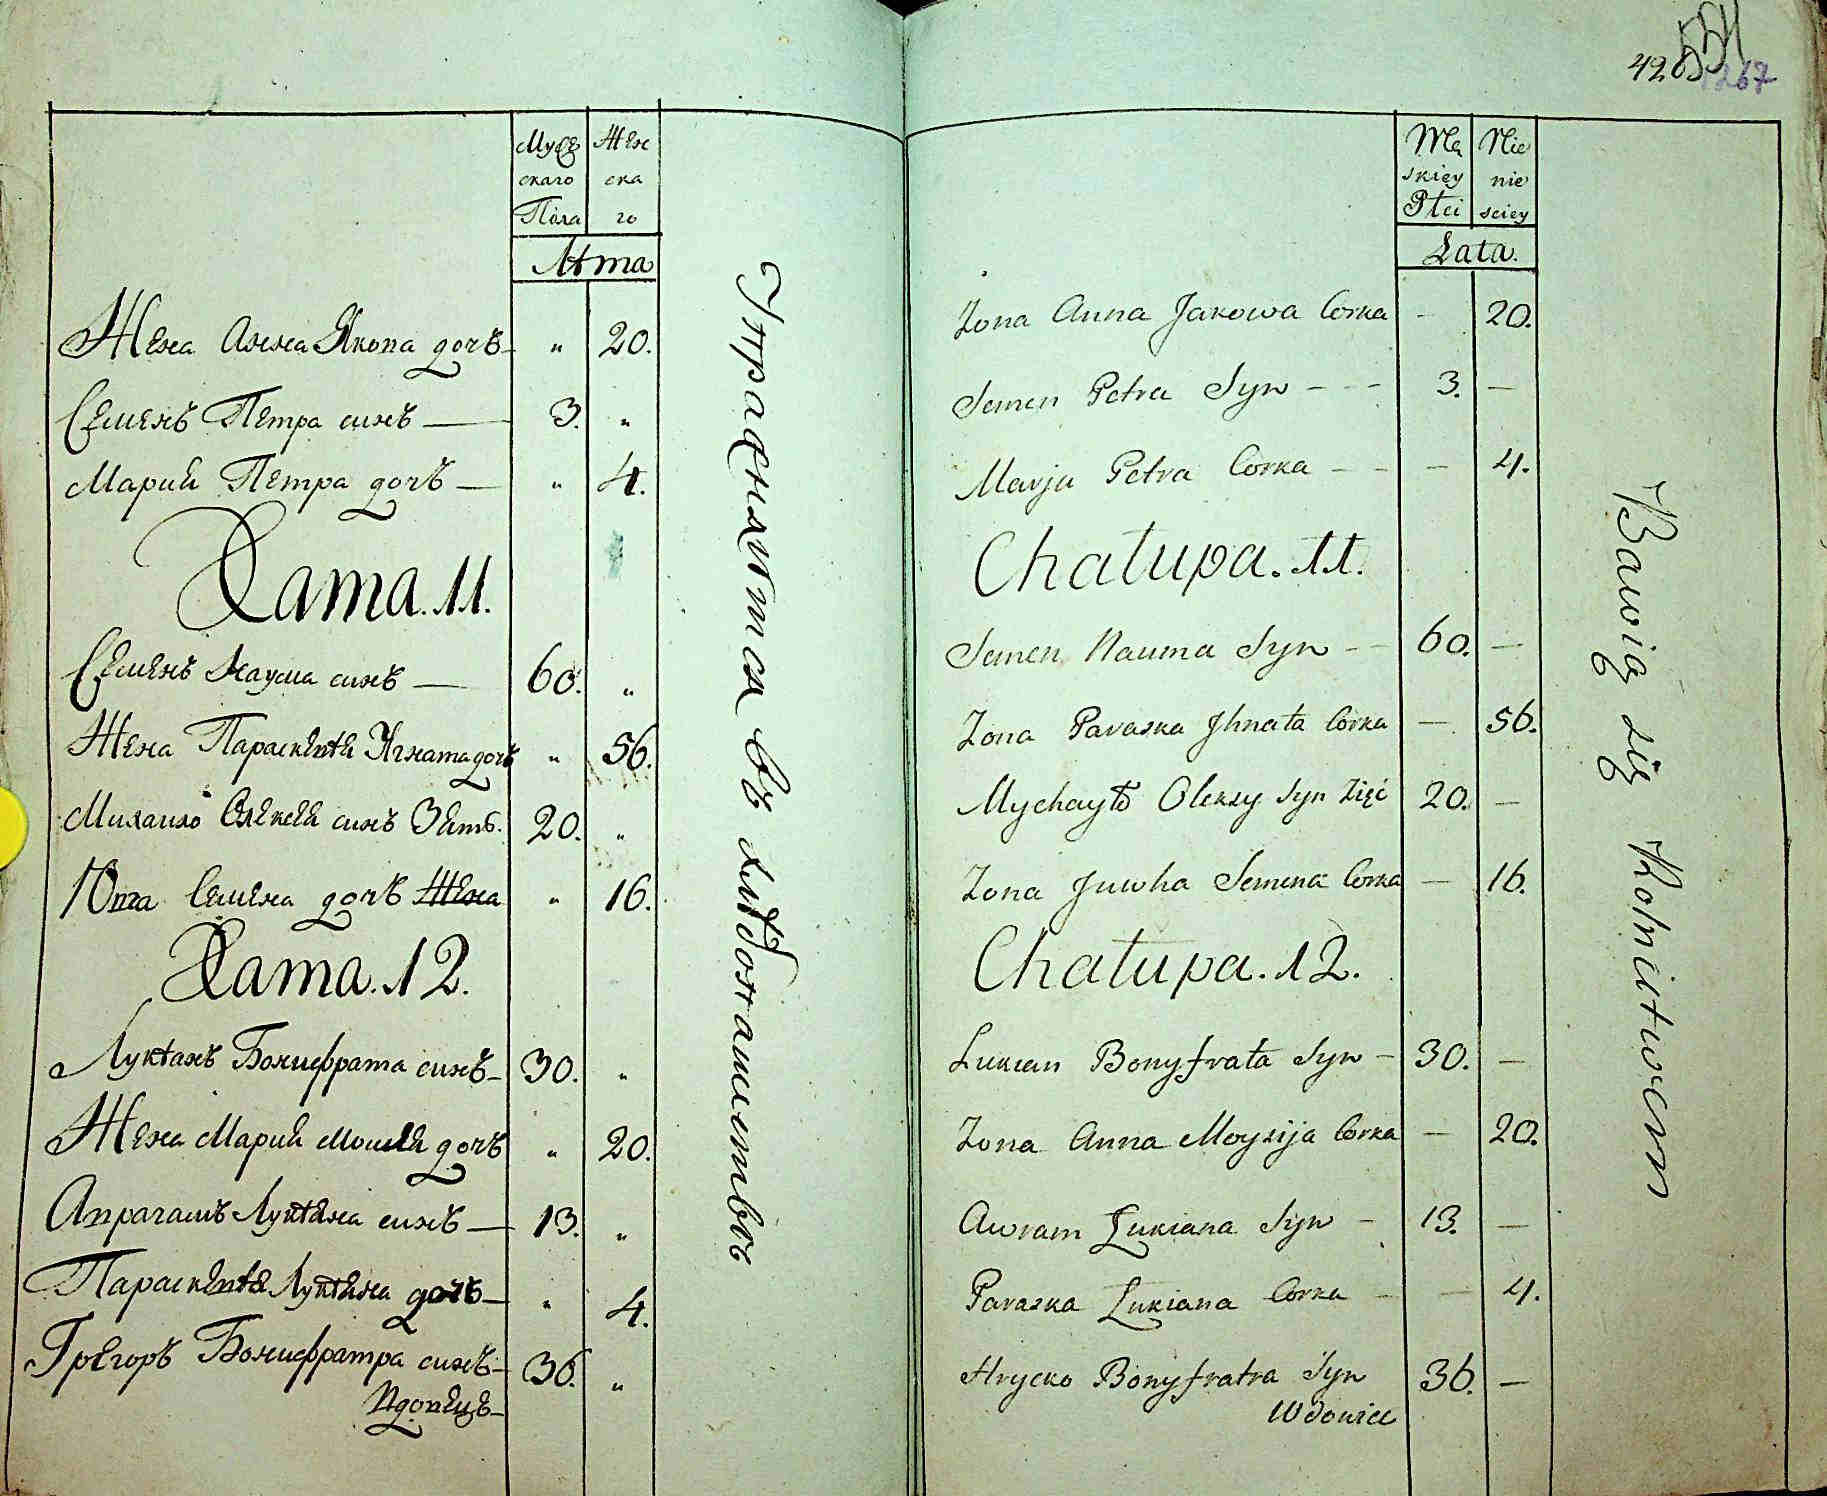 428
554
267
Мужескаго Пола
Женскаго
Лѣта
Жена Анна Якова дочъ 20.
Семенъ Петра синъ 3.
Мария Петра дочъ 4.
Хата. 11.
Семенъ Наума синъ 60.
Жена Параскевѣя Игната дочъ 56.
Михаило Олексея синъ Зять. 20.
Семена дочъ Жена 16.
Хата. 12.
Лукѣанъ Бонифрата синъ 30.
Жена Мария Моисея дочъ 20.
Аврагамъ Лукѣяна синъ 13.
Параскевѣя Лукѣяна дочъ 4.
Грегоръ Бонифратра синъ 36.
Вдовецъ
Упражняются въ хлѣбопашествѣ
Męskiey Płci
Nieniesciey
Lata.
Zona Anna Jakowa Corka - 20.
Semen Petra Syn - - - 3. -
Marja Petra Corka - - - 4.
Chałupa. 11.
Semen Nauma Syn - - 60. -
Zona Paraska Jhnata Corka - 56.
Mychayło Olexsy Syn Zięć 20. -
Zona Juwha Semena Corka - 16.
Chałupa. 12.
Lukian Bonyfrata Syn - 30. -
Zona Anna Moysija Corka - 20.
Awram Lukiana Syn - 13. -
Paraska Lukiana Corka - - 4.
Hrycko Bonyfratra Syn 36. -
Wdowiec
Bawią się Rolnictwem